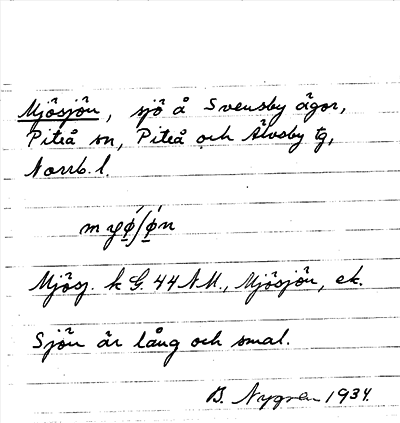 Mjösjön, sjö å Svensby ägor,
Piteå sn, Piteå och Älvsby tg,
Norrb. l.
myǿʃø̀n
Mjösj. k G. 44 NM., Mjösjön, ek.
Sjön är lång och smal.
B. Nygren 1934.